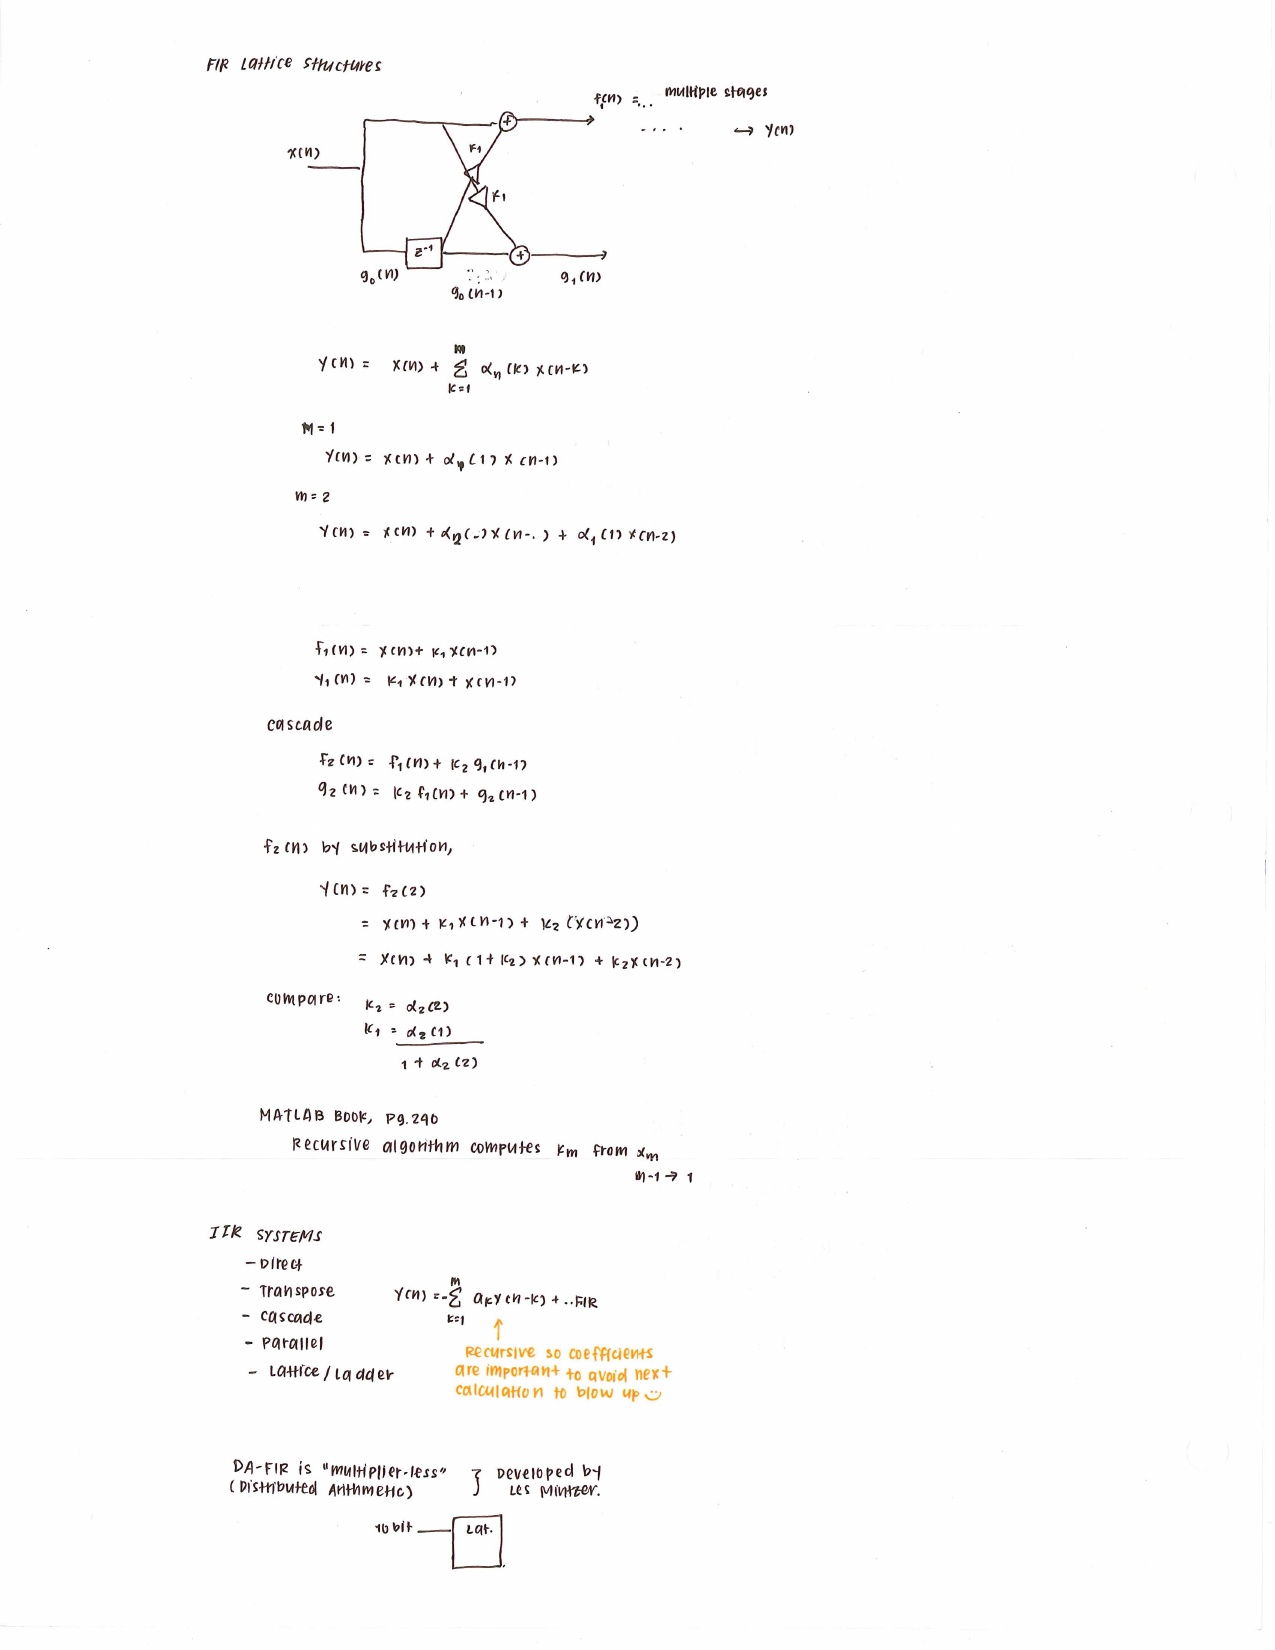 FIR Lattice Structures
f₁(n) =... multiple stages
.... ↔ y(n)
x(n)
K₁
K₁
z⁻¹
g₀(n)
g₀(n-1)
g₁(n)
y(n) = x(n) + Σ αₙ(k) x(n-k)
k=1
M=1
y(n) = x(n) + α (1) x(n-1)
m=2
y(n) = x(n) + α₂( ) x(n- ) + α₁(1) x(n-2)
f₁(n) = x(n) + K₁ x(n-1)
y₁(n) = K₁ x(n) + x(n-1)
cascade
f₂(n) = f₁(n) + K₂ g₁(n-1)
g₂(n) = K₂ f₁(n) + g₂(n-1)
f₂(n) by substitution,
y(n) = f₂(2)
= x(n) + K₁ x(n-1) + K₂ (x(n-2))
= x(n) + K₁ (1 + K₂) x(n-1) + K₂ x(n-2)
compare: K₂ = α₂(2)
K₁ = α₂(1)
1 + α₂(2)
MATLAB BOOK, pg. 240
Recursive algorithm computes Km from αm
m-1 → 1
IIR SYSTEMS
- Direct
- Transpose
- cascade
- parallel
- Lattice / Ladder
M
y(n) = - Σ aₖ y(n-k) + .. FIR
k=1
↑
Recursive so coefficients
are important to avoid next
calculation to blow up
DA-FIR is "multiplier-less"
(Distributed Arithmetic)
} Developed by
Les Mintzer.
10 bit
Lat.